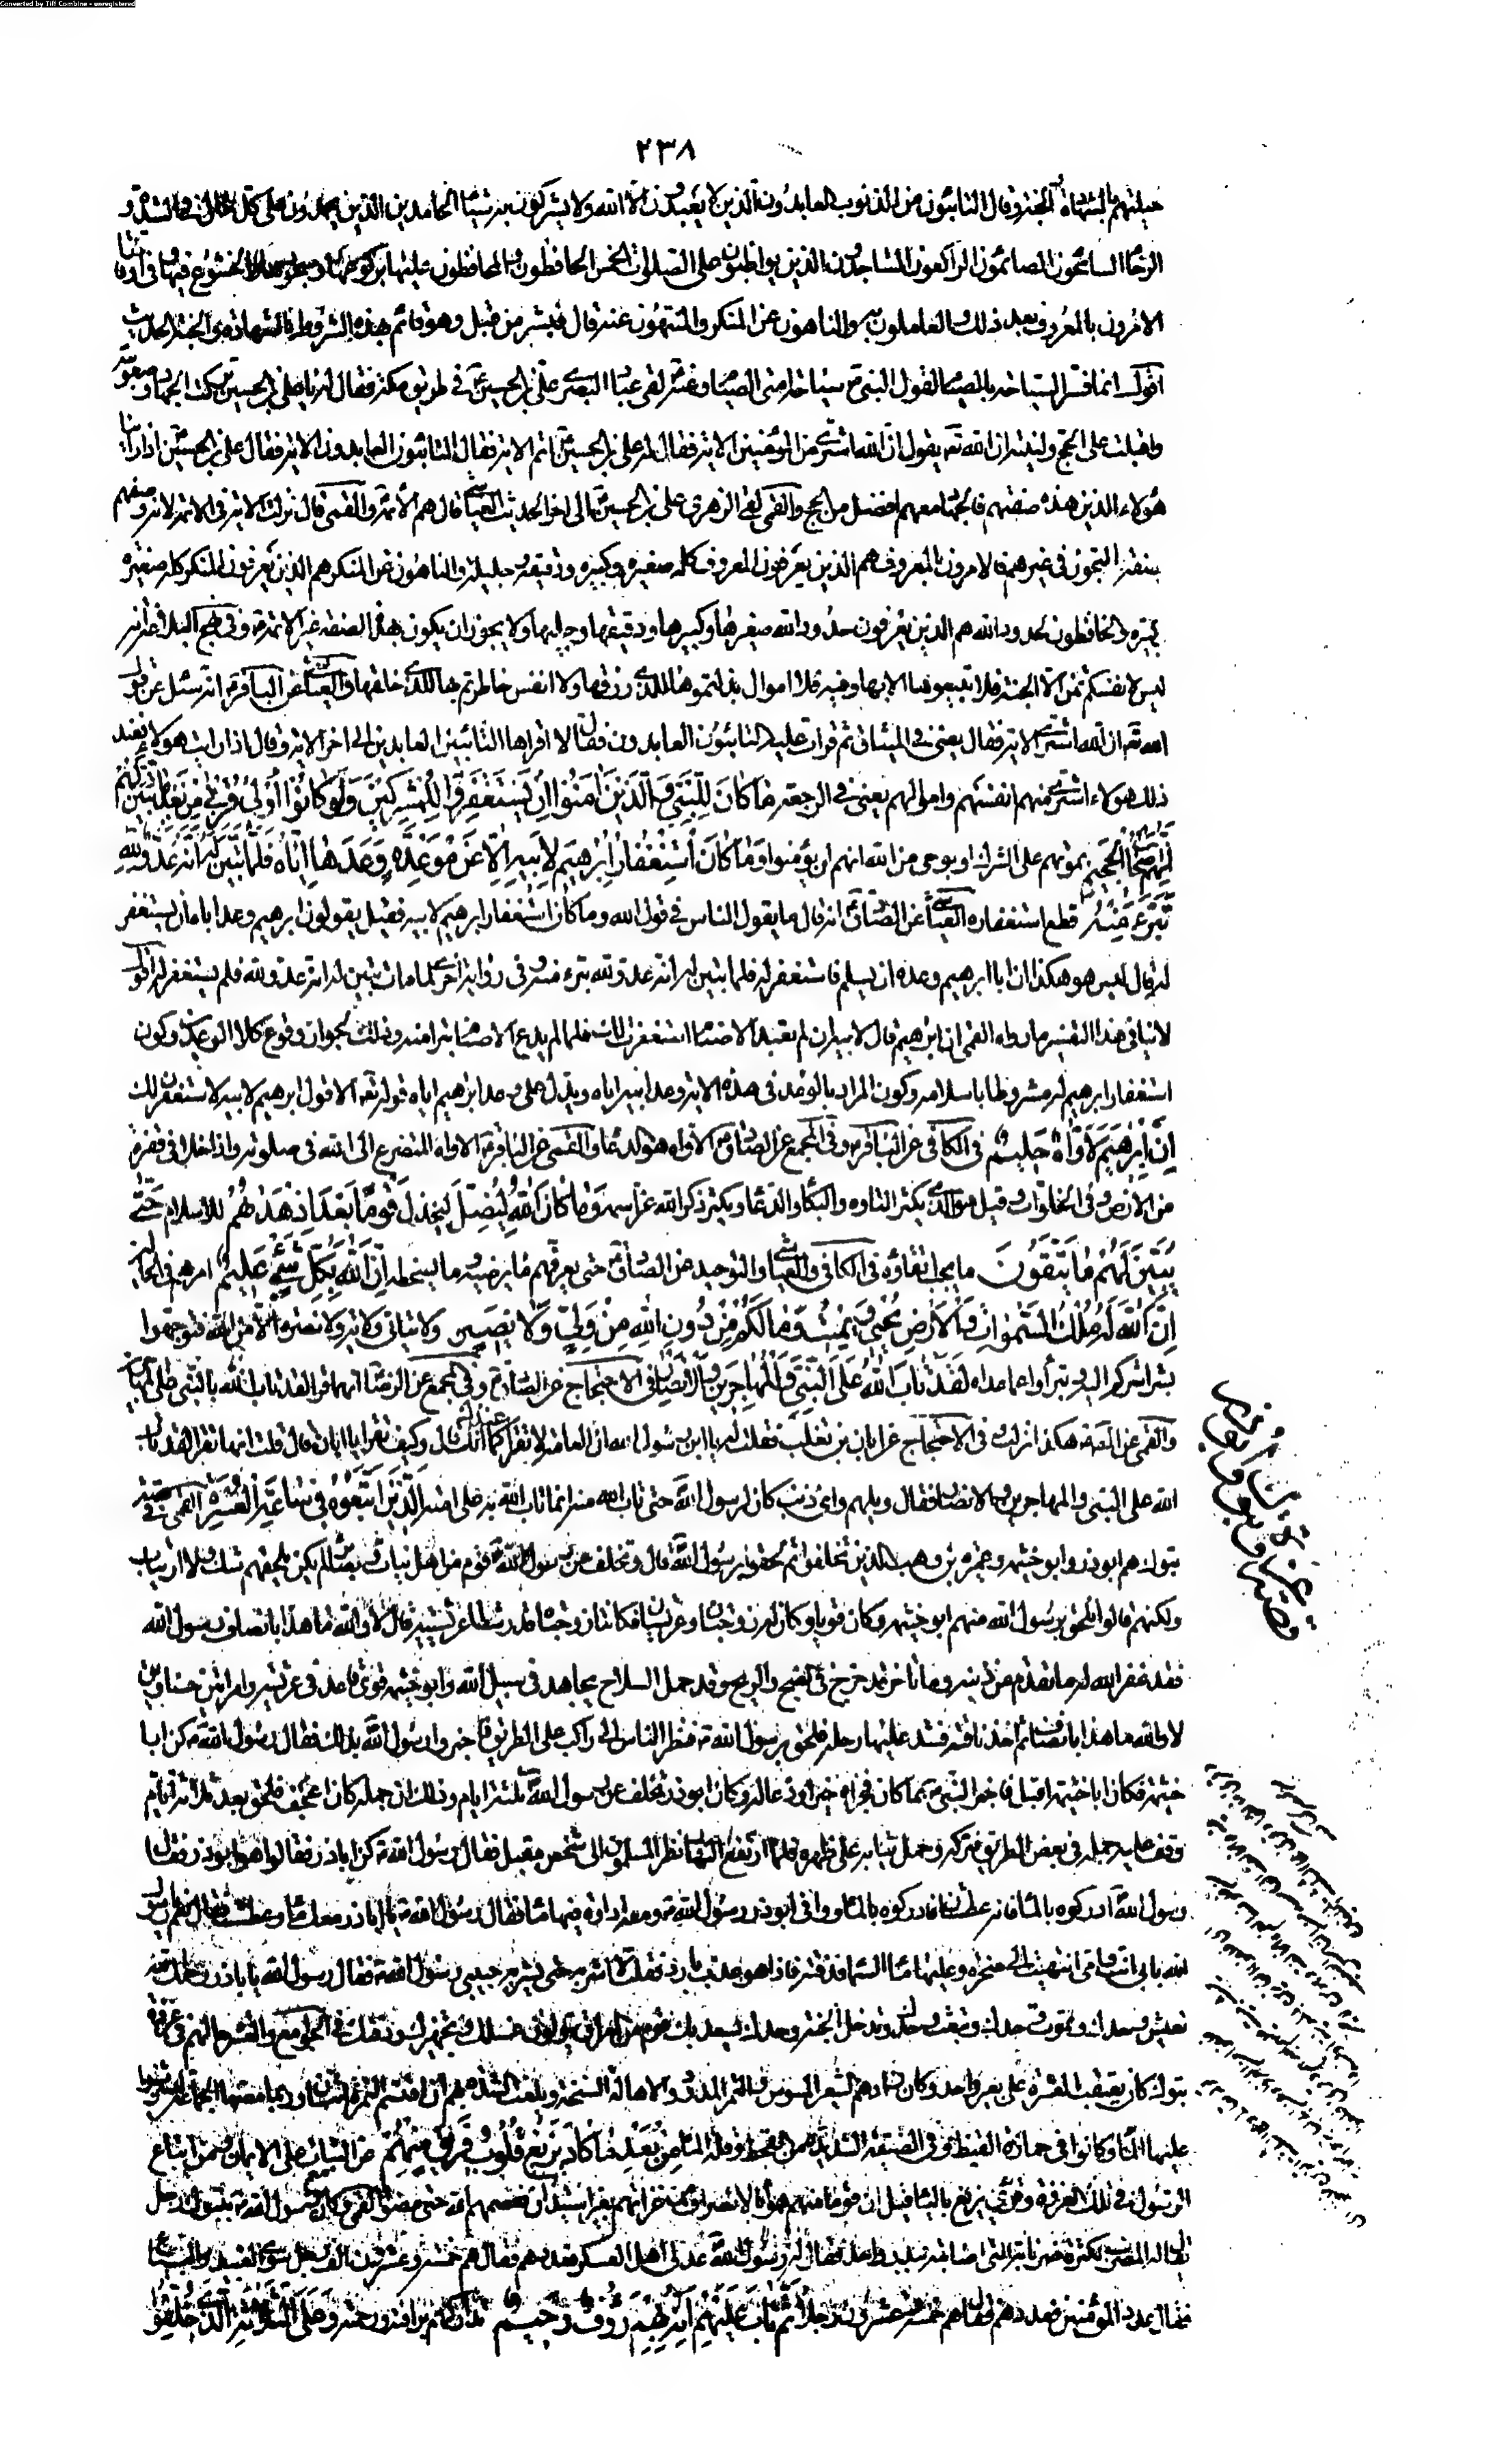 Converted by Tiff Combine - unregistered
٢٣٨
الجنة وقال التائبون من الذنوب العابدون الذين لا يعبدون الا الله ولا يشركون به شيئا الحامدين الذين يحمدون على كل حال في الشدة و
الرخا السائحون الصائمون الراكعون الساجدون الذين يواظبون على الصلوات الخمس الحافظون والمحافظون عليها بركوعها وسجودها والخشوع فيها وفي اوقاتها
الامرون بالمعروف بعد ذلك والعاملون به والناهون عن المنكر والمنتهون عنه قال فبشر من قتل وهو قائم بهذه الشروط بالشهادة والجنة الحديث
اقول انما فسر السياحة بالصيام لقول النبي سياحة امتي الصيام وعنه لقي عباد البصري علي بن الحسين في طريق مكة فقال له يا علي بن الحسين تركت الجهاد وصعوبته
واقبلت على الحج ولينته ان الله يقول ان الله اشترى من المؤمنين الاية فقال له علي بن الحسين اتم الاية فقال التائبون العابدون الاية فقال علي بن الحسين اذا راينا
هؤلاء الذين هذه صفتهم فالجهاد معهم افضل من الحج والقمي لقي الزهري علي بن الحسين الى اخر الحديث العياشي قال هم الائمة والقمي قال نزلت الاية في الائمة لانه وصفهم
بصفة لا تجوز في غيرهم فالامرون بالمعروف هم الذين يعرفون المعروف كله صغيره وكبيره ودقيقه وجليله والناهون عن المنكر هم الذين يعرفون المنكر كله صغيره
وكبيره والحافظون لحدود الله هم الذين يعرفون حدود الله صغيرها وكبيرها ودقيقها وجليها ولا يجوز ان يكون بهذه الصفة غير الائمة وفي نهج البلاغة انه
ليس لانفسكم ثمن الا الجنة فلا تبيعوها الا بها وفيه فلا اموال بذلتموها للذي رزقها ولا انفس خاطرتم بها للذي خلقها والعياشي عن الباقر انه سئل عن قول
الله ان الله اشترى الاية فقال يعني في الميثاق ثم قرات عليه التائبون العابدون فقال لا اقراها التائبين العابدين الى اخر الاية وقال اذا رايت هؤلاء فعند
ذلك هؤلاء اشترى منهم انفسهم واموالهم يعني في الرجعة ما كان للنبي والذين امنوا ان يستغفروا للمشركين ولو كانوا اولي قربى من بعد ما تبين
لهم انهم اصحاب الجحيم بموتهم على الشرك او بوحي من الله انهم لن يؤمنوا وما كان استغفار ابرهيم لابيه الا عن موعدة وعدها اياه فلما تبين له انه عدو لله
تبرء منه قطع استغفاره العياشي عن الصادق انه قال ما يقول الناس في قول الله وما كان استغفار ابرهيم لابيه فقيل يقولون ابرهيم وعد اباه ان يستغفر
له قال ليس هو هكذا ان ابا ابرهيم وعده ان يسلم فاستغفر له فلما تبين له انه عدو لله تبرء منه وفي رواية اخرى لما مات تبين له انه عدو لله فلم يستغفر له اقول
لا ينافي هذا التفسير ما رواه القمي ان ابرهيم قال لابيه ان لم تعبد الاصنام استغفرت لك فلما لم يدع الاصنام تبرا منه وذلك لجواز وقوع كلا الوعدين وكون
استغفار ابرهيم له مشروطا باسلامه وكون المراد بالوعد في هذه الاية وعد ابيه اياه ويدل على وعد ابرهيم اياه قوله تعالى الا قول ابرهيم لابيه لاستغفرن لك
ان ابرهيم لاواه حليم في الكافي عن الباقر وفي المجمع عن الصادق الاواه هو الدعاء والقمي عن الباقر الاواه المتضرع الى الله في صلوته واذا خلا في قفرة
من الارض وفي الخلوات وقيل هو الذي يكثر التاوه والبكاء والدعاء ويكثر ذكر الله عز اسمه وما كان الله ليضل ليخذل قوما بعد اذ هداهم للاسلام حتى
يبين لهم ما يتقون ما يجب اتقاؤه في الكافي والعياشي والتوحيد عن الصادق حتى يعرفهم ما يرضيه وما يسخطه ان الله بكل شيء عليم امرهم في الحالين
ان الله له ملك السموات والارض يحيي ويميت وما لكم من دون الله من ولي ولا نصير ولا يتاتى ولاية ولا نصرة الا من الله فتوجهوا
بشراشركم اليه وتبرأوا عما عداه لقد تاب الله على النبي والمهاجرين والانصار في الاحتجاج عن الصادق وفي المجمع عن الرضا انهما قرأ لقد تاب الله بالنبي على المهاجرين
والقمي عن الصادق هكذا نزلت وفي الاحتجاج عن ابان بن تغلب فقلت له يا ابن رسول الله ان العامة لا تقرا كما عندك قال وكيف تقرا يا ابان قال قلت انها تقرا لقد تاب
الله على النبي والمهاجرين والانصار فقال ويلهم واي ذنب كان لرسول الله حتى تاب الله منه انما تاب الله به على امته الذين اتبعوه في ساعة العسرة القمي في قصة
تبوك هم ابو ذر وابو خيثمة وعميرة بن وهب الذين تخلفوا ثم لحقوا برسول الله قال وتخلف عن رسول الله قوم من اهل نيات وبصائر لم يكن يلحقهم شك ولا ارتياب
ولكنهم قالوا نلحق برسول الله منهم ابو خيثمة وكان قويا وكان له زوجتان وعريشان فكانتا زوجتاه قد رشتا عريشيه قال لا والله ما هذا بانصاف رسول الله
فقد غفر الله له ما تقدم من ذنبه وما تاخر قد خرج في الضح والريح وقد حمل السلاح يجاهد في سبيل الله وابو خيثمة قوي قاعد في عريشه وامراتين حسناوين
لا والله ما هذا بانصاف ثم اخذ ناقته فشد عليها رحله فلحق برسول الله فنظر الناس الى راكب على الطريق فاخبروا رسول الله بذلك فقال رسول الله كن ابا
خيثمة فكان ابا خيثمة اقبل فاخبر النبي بما كان فجزاه خيرا ودعا له وكان ابو ذر تخلف عن رسول الله ثلثة ايام وذلك ان جمله كان اعجف فلحق بعد ثلاثة ايام
وقف عليه جمله في بعض الطريق فتركه وحمل ثيابه على ظهره فلما ارتفع النهار نظر المسلمون الى شخص مقبل فقال رسول الله كن ابا ذر فقالوا هو ابو ذر فقال
رسول الله ادركوه بالماء فانه عطشان فادركوه بالماء ووافى ابو ذر رسول الله ومعه اداوة فيها ماء فقال رسول الله يا ابا ذر معك ماء وعطشت فقال نعم يا رسول
الله بابي انت وامي انتهيت الى صخرة وعليها ماء السماء فذقته فاذا هو عذب بارد فقلت لا اشربه حتى يشربه حبيبي رسول الله فقال رسول الله يا ابا ذر رحمك الله
تعيش وحدك وتموت وحدك وتبعث وحدك وتدخل الجنة وحدك يسعد بك قوم من اهل العراق يتولون غسلك وتجهيزك ودفنك وفي الجوامع والعسرة حالهم في غزوة
تبوك كان يعتقب العشرة على بعير واحد وكان زادهم الشعير المسوس والتمر المدود والاهالة السنخة وبلغت الشدة بهم ان اقتسم التمرة اثنان وربما مصها الجماعة ليشربوا
عليها الماء وكانوا في حمارة القيظ وفي الضيقة الشديدة من القحط وقلة الماء من بعد ما كاد يزيغ قلوب فريق منهم عن الثبات على الايمان ومن اتباع
الرسول في تلك الغزوة وقرئ يزيغ بالياء قيل ان قوما منهم هموا بالانصراف من غزاتهم بغير استيذان فعصمهم الله حتى مضوا القمي وكان مع رسول الله بتبوك رجل
يقال له المضرب لكثرة ضرباته التي اصابته ببدر واحد فقال له رسول الله عد لي اهل العسكر فعددهم فقال هم خمسة وعشرون الف رجل سوى العبيد والتباع
فقال عد المؤمنين فعددهم فقال هم خمسة وعشرون رجلا ثم تاب عليهم انه بهم رؤف رحيم تداركهم برافته ورحمته وعلى الثلاثة الذين خلفوا